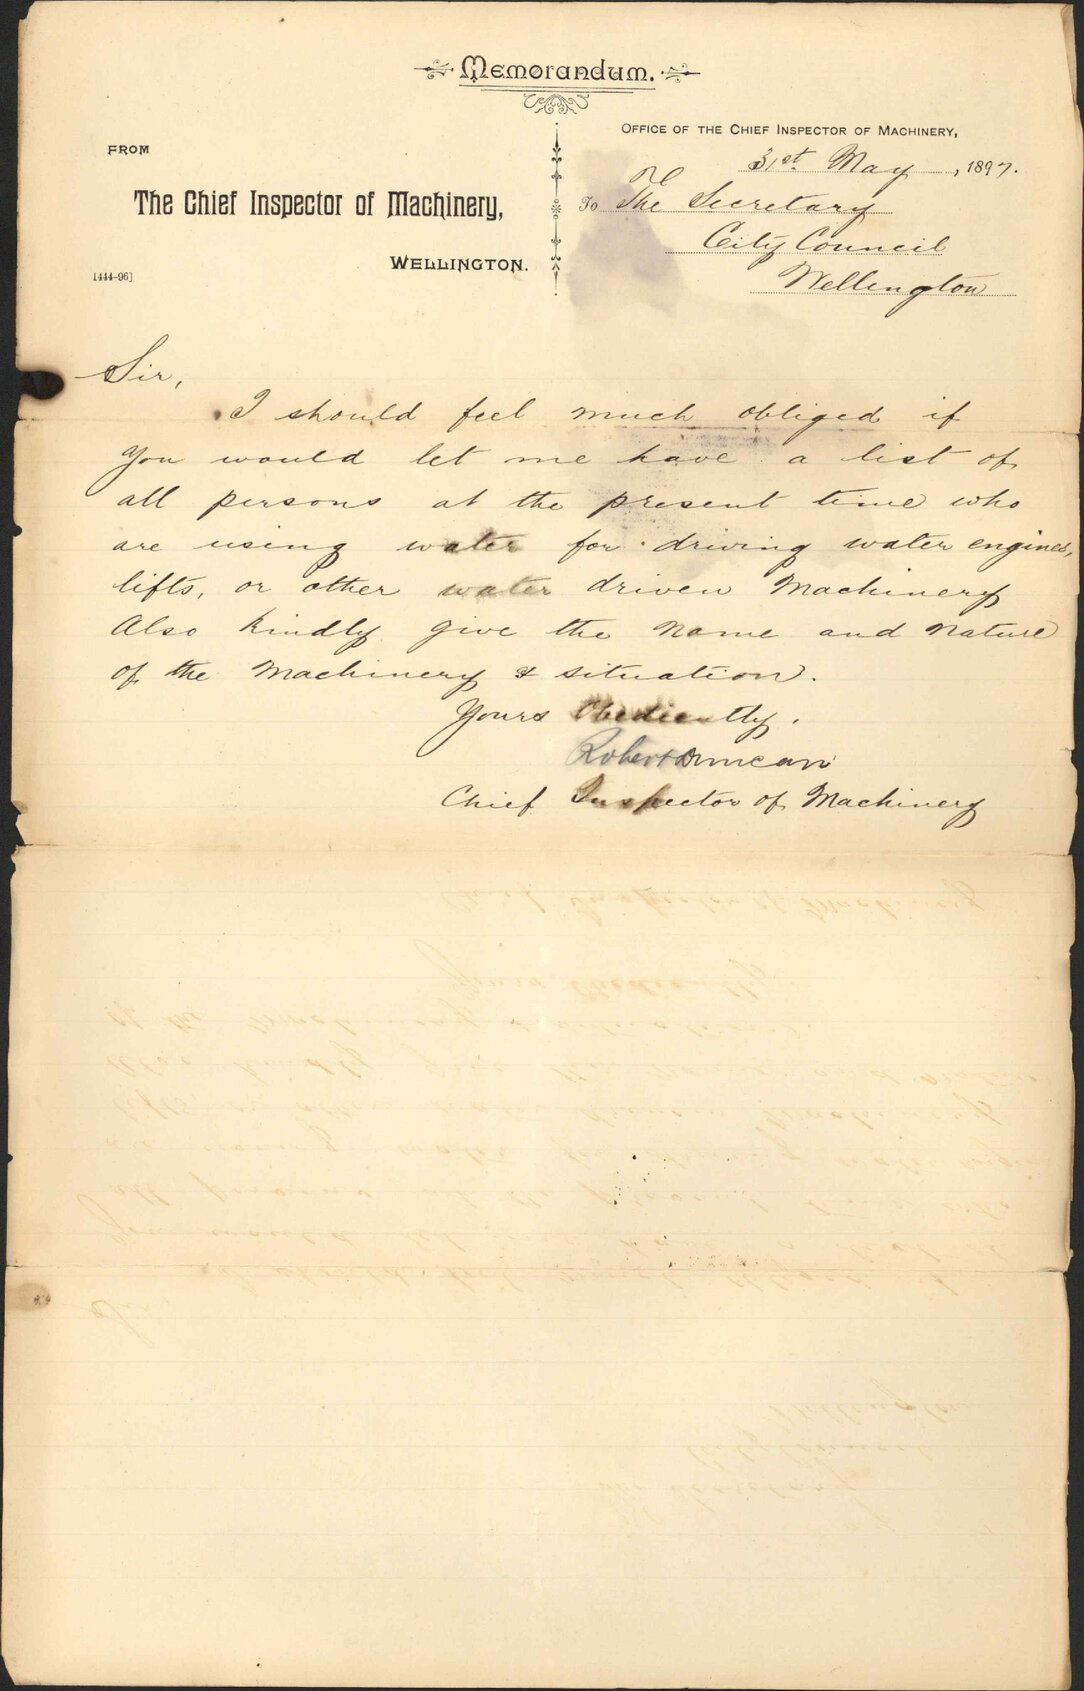 Memorandum.
OFFICE OF THE CHIEF INSPECTOR OF MACHINERY,
31st. May, 1897.
FROM
The Chief Inspector of Machinery,
WELLINGTON.
1444-96]
To The Secretary
City Council
Wellington
Sir,
I should feel much obliged if
you would let me have a list of
all persons at the present time who
are using water for driving water engines,
lifts, or other water driven Machinery
Also kindly give the name and nature
of the Machinery & situation.
Yours Obediently.
Robert Duncan
Chief Inspector of Machinery